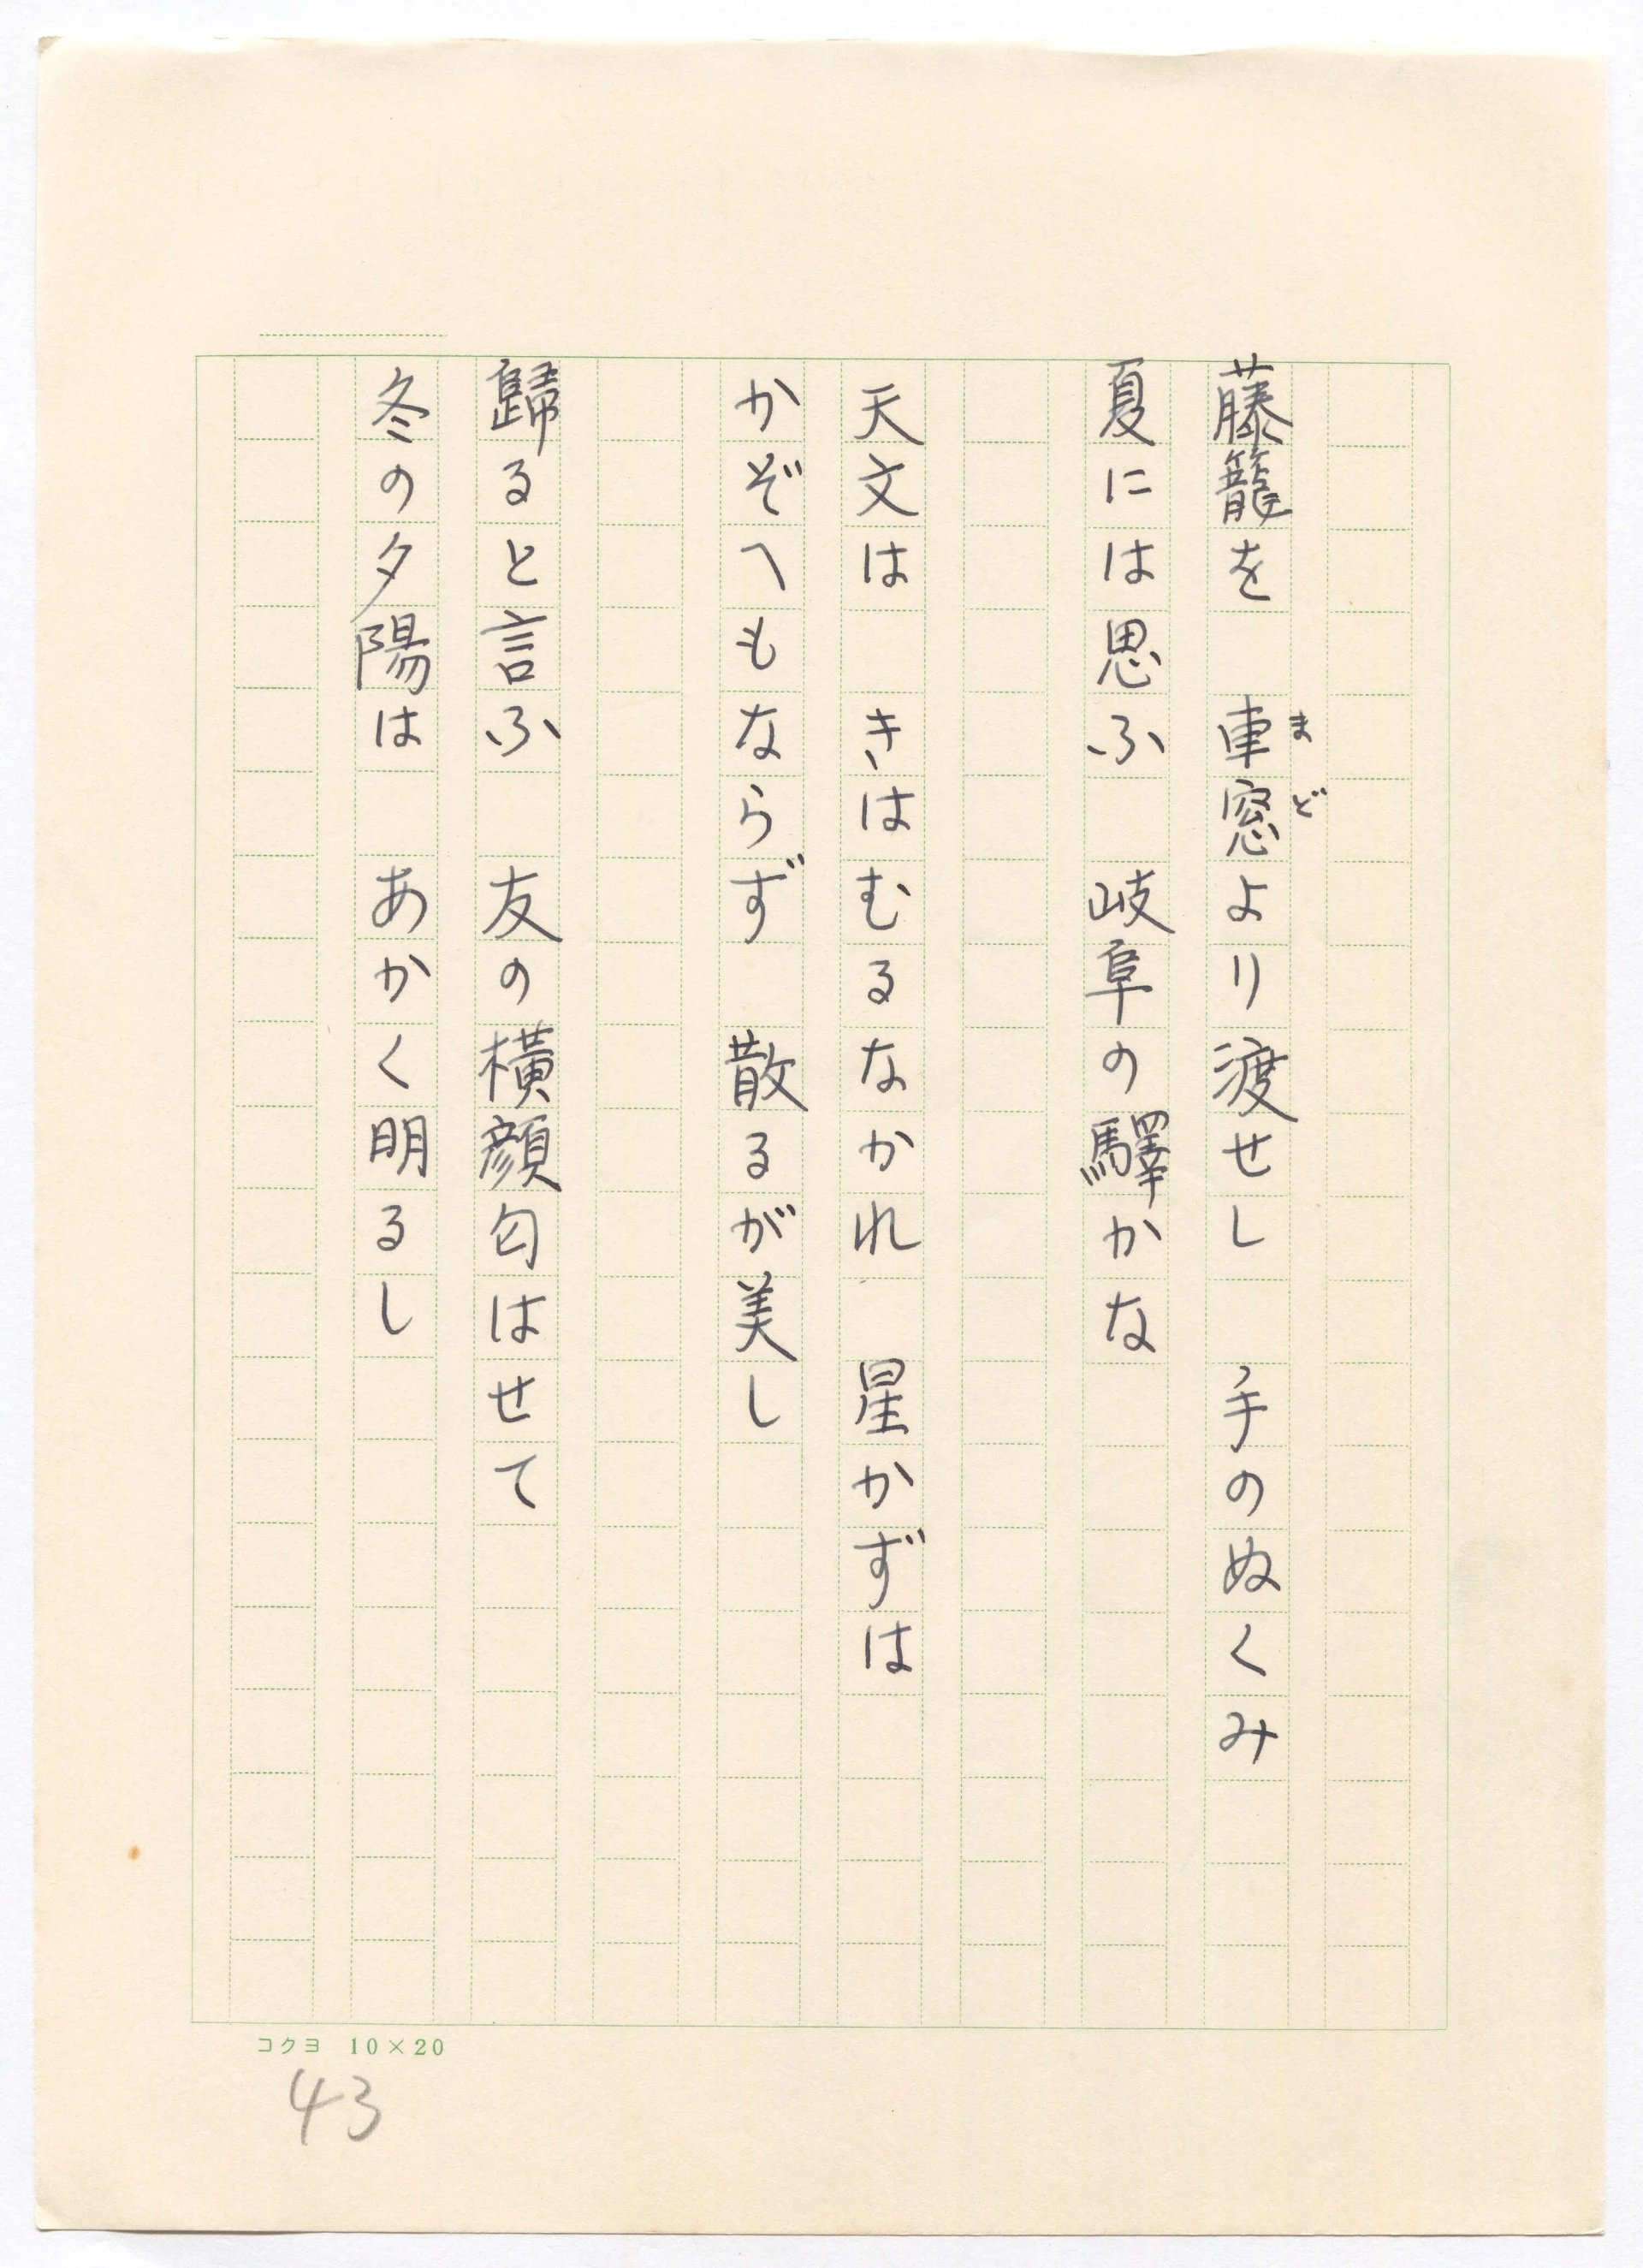 藤籠を　車窓より渡せし　手のぬくみ
まど
夏には思ふ　岐阜の驛かな
天文は　きはむるなかれ　星かずは
かぞへもならず　散るが美し
歸ると言ふ　友の横顔匂はせて
冬の夕陽は　あかく明るし
コクヨ 10×20
43